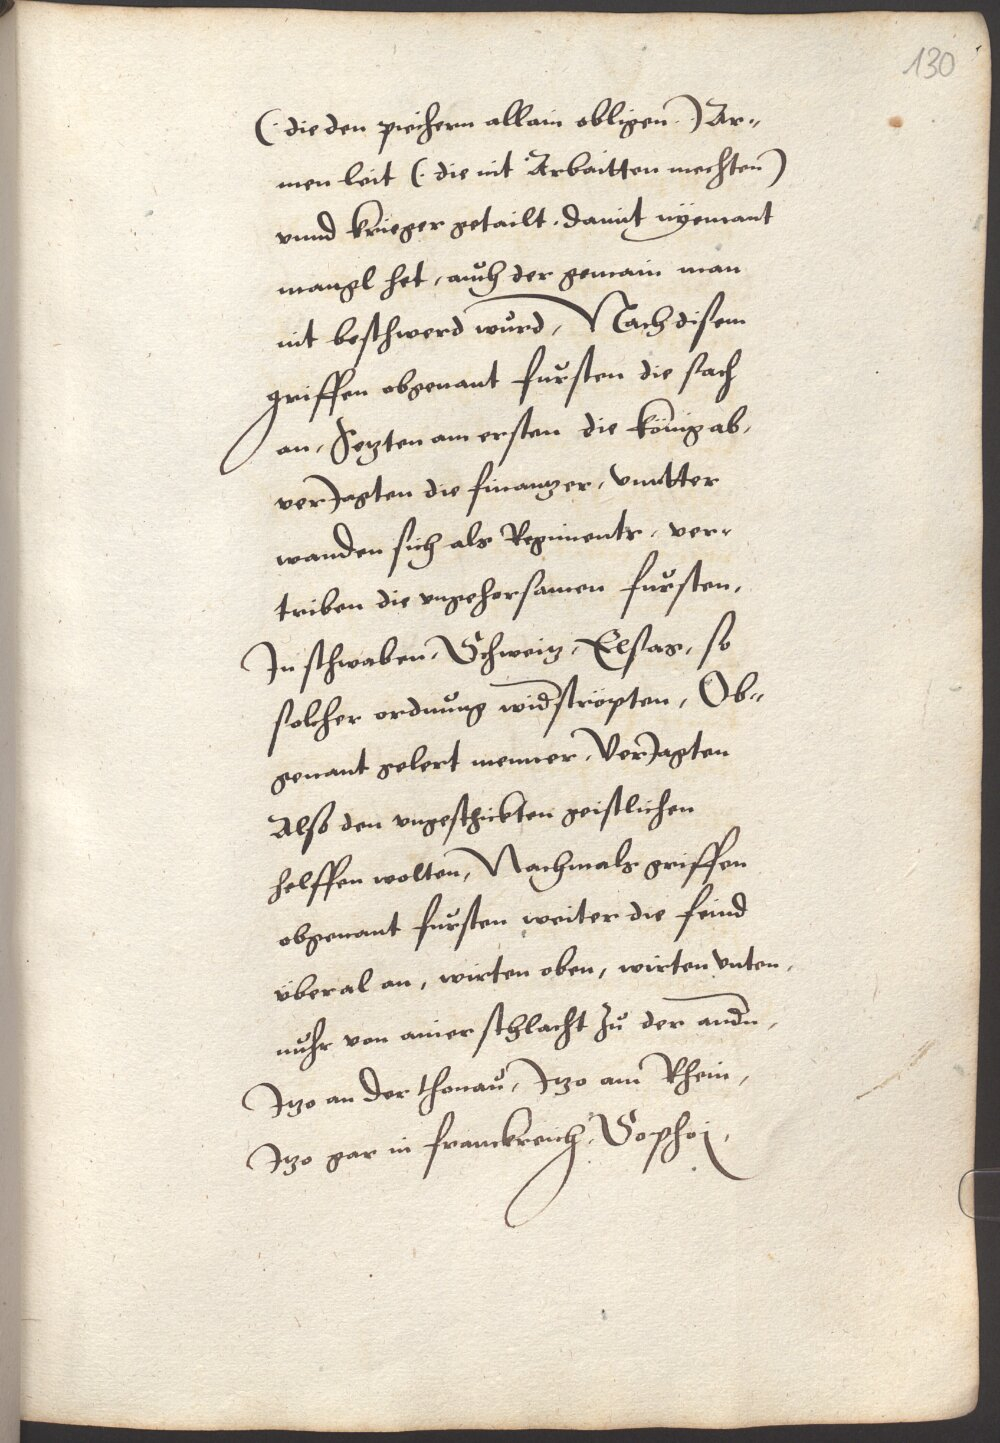 130
(: die den piechern allain obligen :) Ar-
men leit (: die nit Arbaitten mechten)
vnnd krieger getailt, damit nyemant
mangl het, auch der gemain man
nit beschwerd wurd, Nach disem
griffen obgenant fursten die sach
an, Setzten am ersten die könig ab,
verJagten die finantzer, vnntter
wanden sich als Regiments, ver-
triben die vngehorsamen fursten,
In schwaben, Schweitz, Elsas, so
solcher ordnung widstrepten, Ob-
genant gelert menner, VerJagten
Also den vngeschickten geistlichen
helffen wolten, Nachmals griffen
obgenant fursten weiter die feind
vberal an, wirten oben, wirten vnten,
nuhr von ainer schlacht zu der andn,
Itzo an der thonau, Itzo am Rhein,
Itzo gar in franckreich, Sophoj,